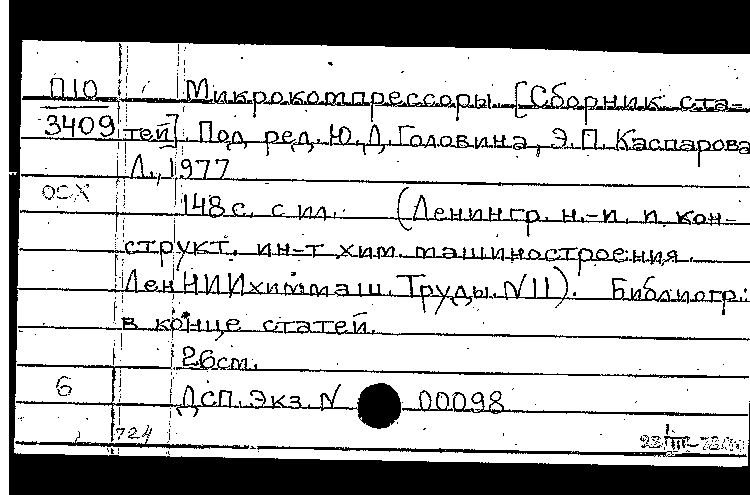 П10 Микрокомпрессоры. [Сборник ста-
3409 тей]. Под ред. Ю.Д. Головина, Э.П. Каспарова
Л., 1977
ОСХ 148 с. с ил. (Ленингр. н.-и. и кон-
структ. ин-т хим. машиностроения.
ЛенНИИхиммаш. Труды. N 11). Библиогр.:
в конце статей.
26 см.
6 ДСП. Экз. N 00098
724